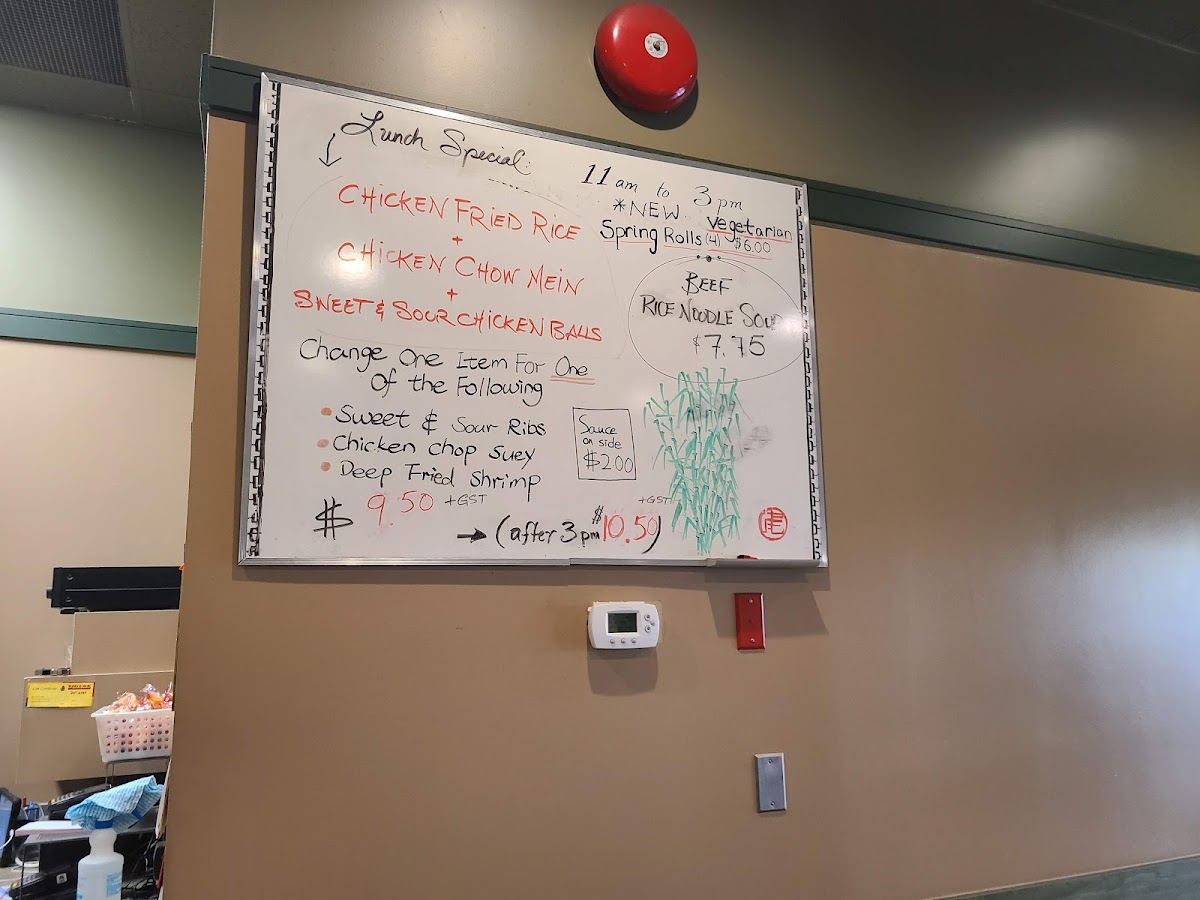 Lunch Special:
11 am to 3 pm
CHICKEN FRIED RICE
+
CHICKEN CHOW MEIN
+
SWEET & SOUR CHICKEN BALLS
Change One Item For One
Of the Following
• Sweet & Sour Ribs
• Chicken Chop Suey
• Deep Fried Shrimp
$ 9.50 +GST
→ (after 3 pm $10.50) +GST
*NEW Vegetarian
Spring Rolls (4) $6.00
BEEF
RICE NOODLE SOUP
$7.75
Sauce
on side
$2.00